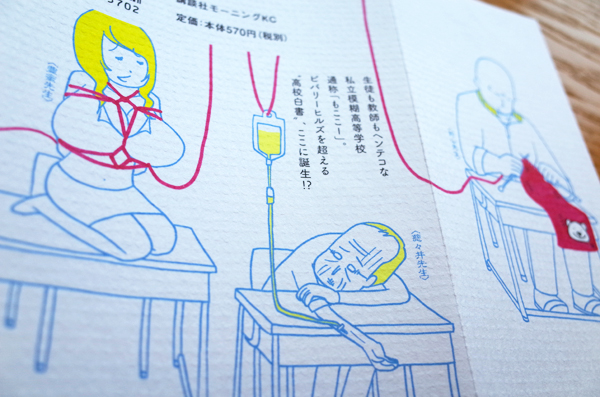 5702
講談社モーニングKC
定価:本体570円(税別)
生徒も教師もヘンテコな
私立模糊高等学校
通称「もここー」。
ビバリーヒルズを超える
“高校白書”、ここに誕生!?